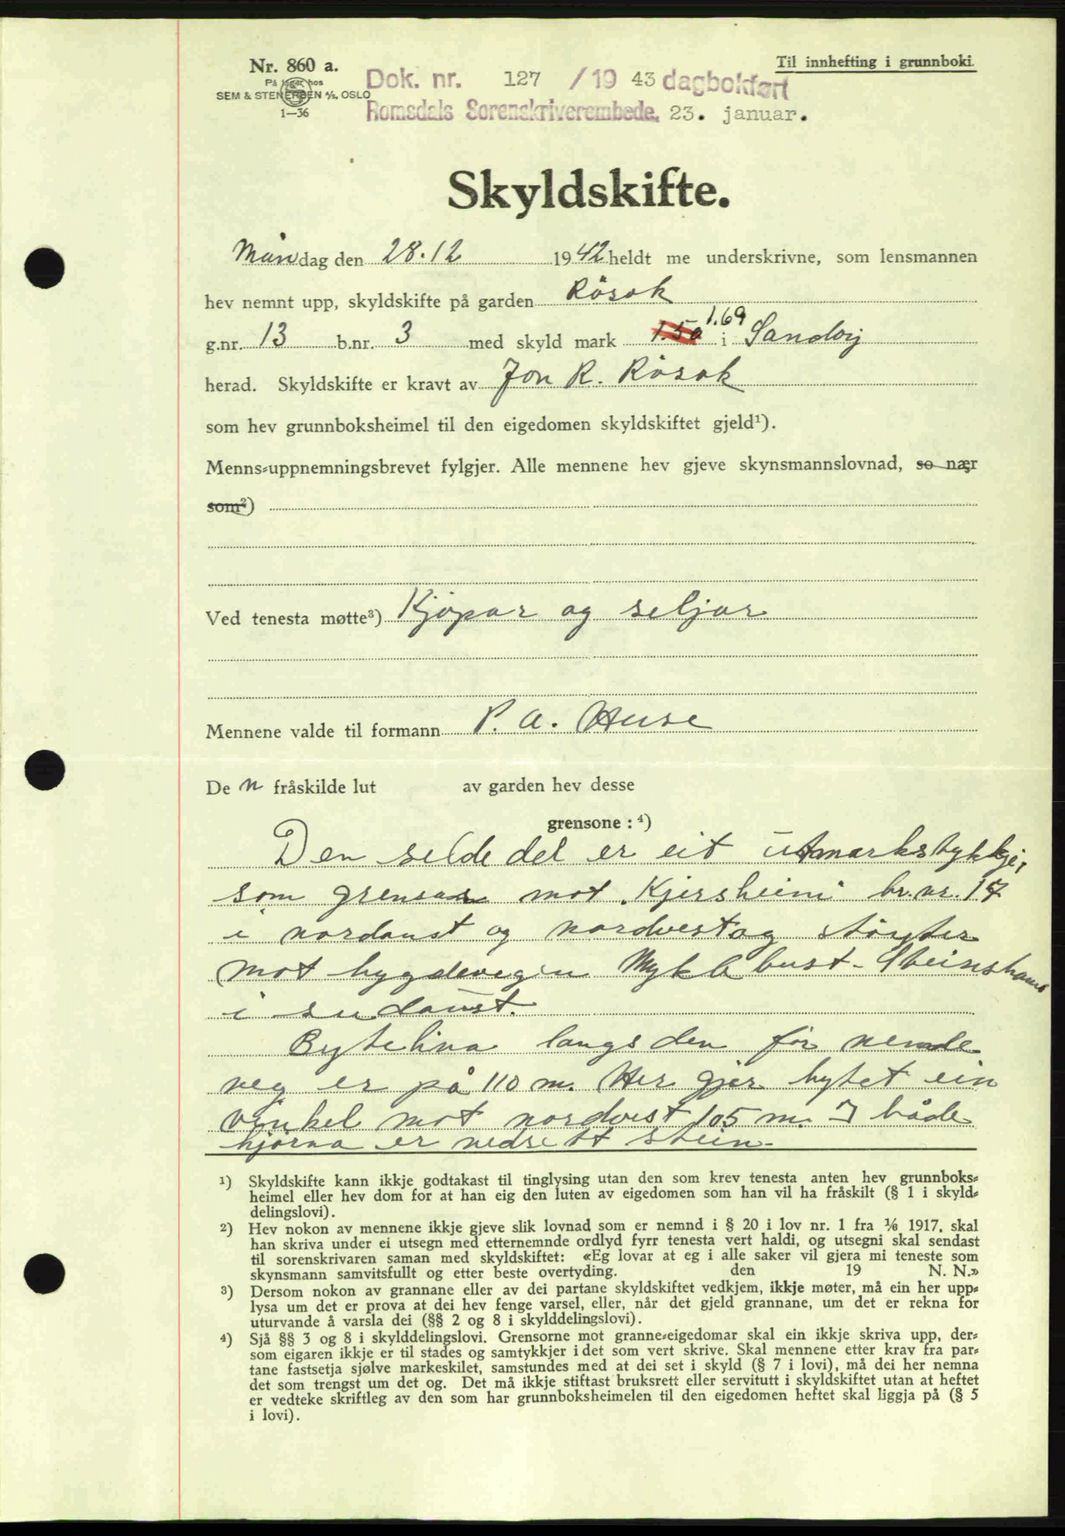 Nr. 860 a.
Til innhefting i grunnboki.
På lager hos
SEM & STENERSEN A/S, OSLO
1—36
Dok. nr. 127 /19 43 dagbokført
Romsdals Sorenskriverembede, 23. januar.
Skyldskifte.
Måndag den 28.12 1942 heldt me underskrivne, som lensmannen
hev nemnt upp, skyldskifte på garden Rösok
g.nr. 13 b.nr. 3 med skyld mark 1.50 1.69 i Sandöy
herad. Skyldskifte er kravt av Jon R. Rösok
som hev grunnboksheimel til den eigedomen skyldskiftet gjeld¹).
Menns⸗uppnemningsbrevet fylgjer. Alle mennene hev gjeve skynsmannslovnad, so nær
som²)
Ved tenesta møtte³) Kjöpar og seljar
Mennene valde til formann P. A. Huse
De n fråskilde lut av garden hev desse
grensone : ⁴)
Den selde del er eit utmarkstykkje,
som grensar mot "Kjersheim" br.nr. 17
i nordaust og nordvest og stöyter
mot bygdevegin Myklebust - Steinshamn
i sudaust.
Bytelina langs den för nemde
veg er på 110 m. Her gjer bytet ein
vinkel mot nordvest 105 m. I både
hjörna er nedsett stein.
¹) Skyldskifte kann ikkje godtakast til tinglysing utan den som krev tenesta anten hev grunnboks⸗
heimel eller hev dom for at han eig den luten av eigedomen som han vil ha fråskilt (§ 1 i skyld⸗
delingslovi).
²) Hev nokon av mennene ikkje gjeve slik lovnad som er nemnd i § 20 i lov nr. 1 fra ⅙ 1917, skal
han skriva under ei utsegn med etternemnde ordlyd fyrr tenesta vert haldi, og utsegni skal sendast
til sorenskrivaren saman med skyldskiftet: «Eg lovar at eg i alle saker vil gjera mi teneste som
skynsmann samvitsfullt og etter beste overtyding. den 19 N. N.»
³) Dersom nokon av grannane eller av dei partane skyldskiftet vedkjem, ikkje møter, må ein her upp⸗
lysa um det er prova at dei hev fenge varsel, eller, når det gjeld grannane, um det er rekna for
uturvande å varsla dei (§§ 2 og 8 i skylddelingslovi).
⁴) Sjå §§ 3 og 8 i skylddelingslovi. Grensorne mot granne⸗eigedomar skal ein ikkje skriva upp, der⸗
som eigaren ikkje er til stades og samtykkjer i det som vert skrive. Skal mennene etter krav fra par⸗
tane fastsetja sjølve markeskilet, samstundes med at dei set i skyld (§ 7 i lovi), må dei her nemna
det som trengst um det og. Det må ikkje stiftast bruksrett eller servitutt i skyldskiftet utan at heftet
er vedteke skriftleg av den som har grunnboksheimelen til den eigedomen heftet skal liggja på (§ 5
i lovi).